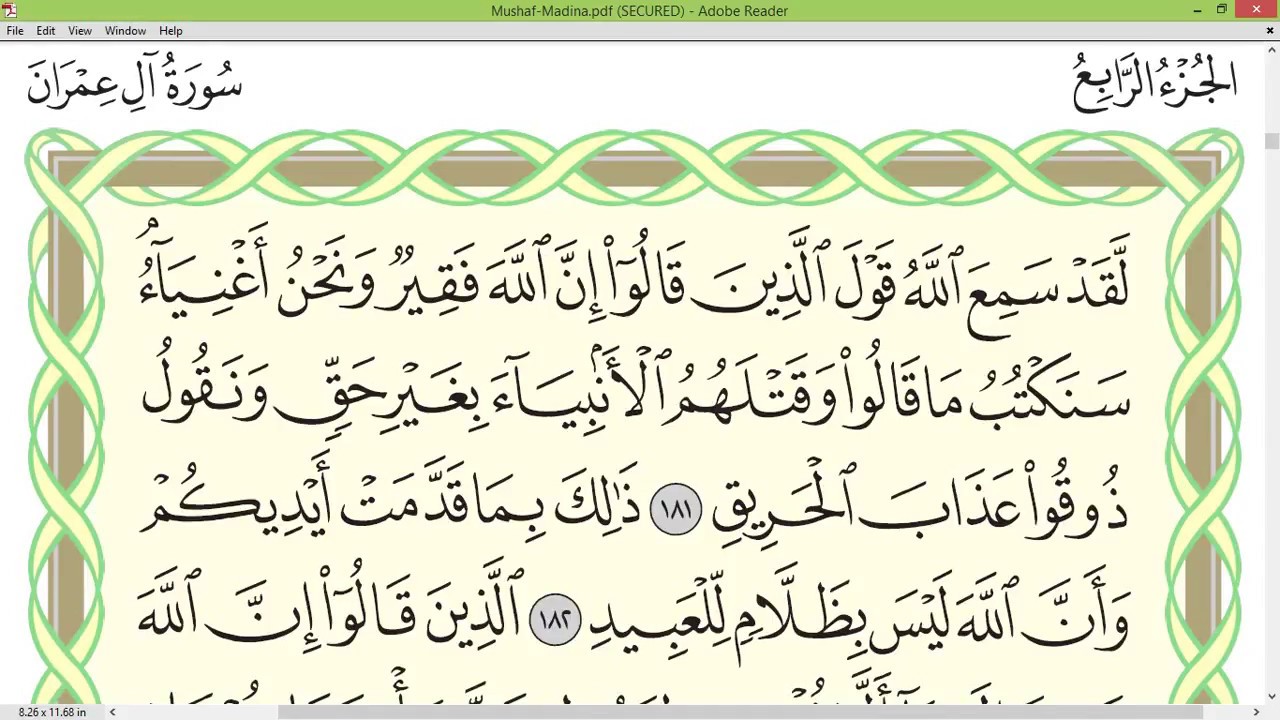 Mushaf-Madina.pdf (SECURED) - Adobe Reader
File Edit View Window Help
الجُزْءُ الرَّابِعُ
سُورَةُ آلِ عِمْرَانَ
لَّقَدْ سَمِعَ ٱللَّهُ قَوْلَ ٱلَّذِينَ قَالُوٓا۟ إِنَّ ٱللَّهَ فَقِيرٌ وَنَحْنُ أَغْنِيَآءُ ۘ
سَنَكْتُبُ مَا قَالُوا۟ وَقَتْلَهُمُ ٱلْأَنۢبِيَآءَ بِغَيْرِ حَقٍّ وَنَقُولُ
ذُوقُوا۟ عَذَابَ ٱلْحَرِيقِ ١٨١ ذَٰلِكَ بِمَا قَدَّمَتْ أَيْدِيكُمْ
وَأَنَّ ٱللَّهَ لَيْسَ بِظَلَّامٍ لِّلْعَبِيدِ ١٨٢ ٱلَّذِينَ قَالُوٓا۟ إِنَّ ٱللَّهَ
8.26 x 11.68 in